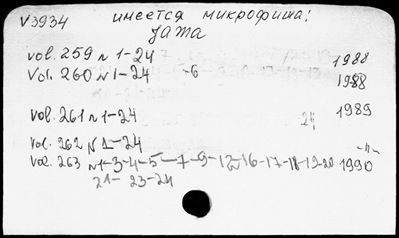 V3934 имеется микрофиша!
JAMA
vol. 259 N 1-24 1988
Vol. 260 N 1-24 -6 1988
vol. 261 N 1-24 24 1989
vol. 262 N 1-24 -"-
vol. 263 N 1-3-4-5-7-9-12-16-17-18-19-20 1990
21- 23-24